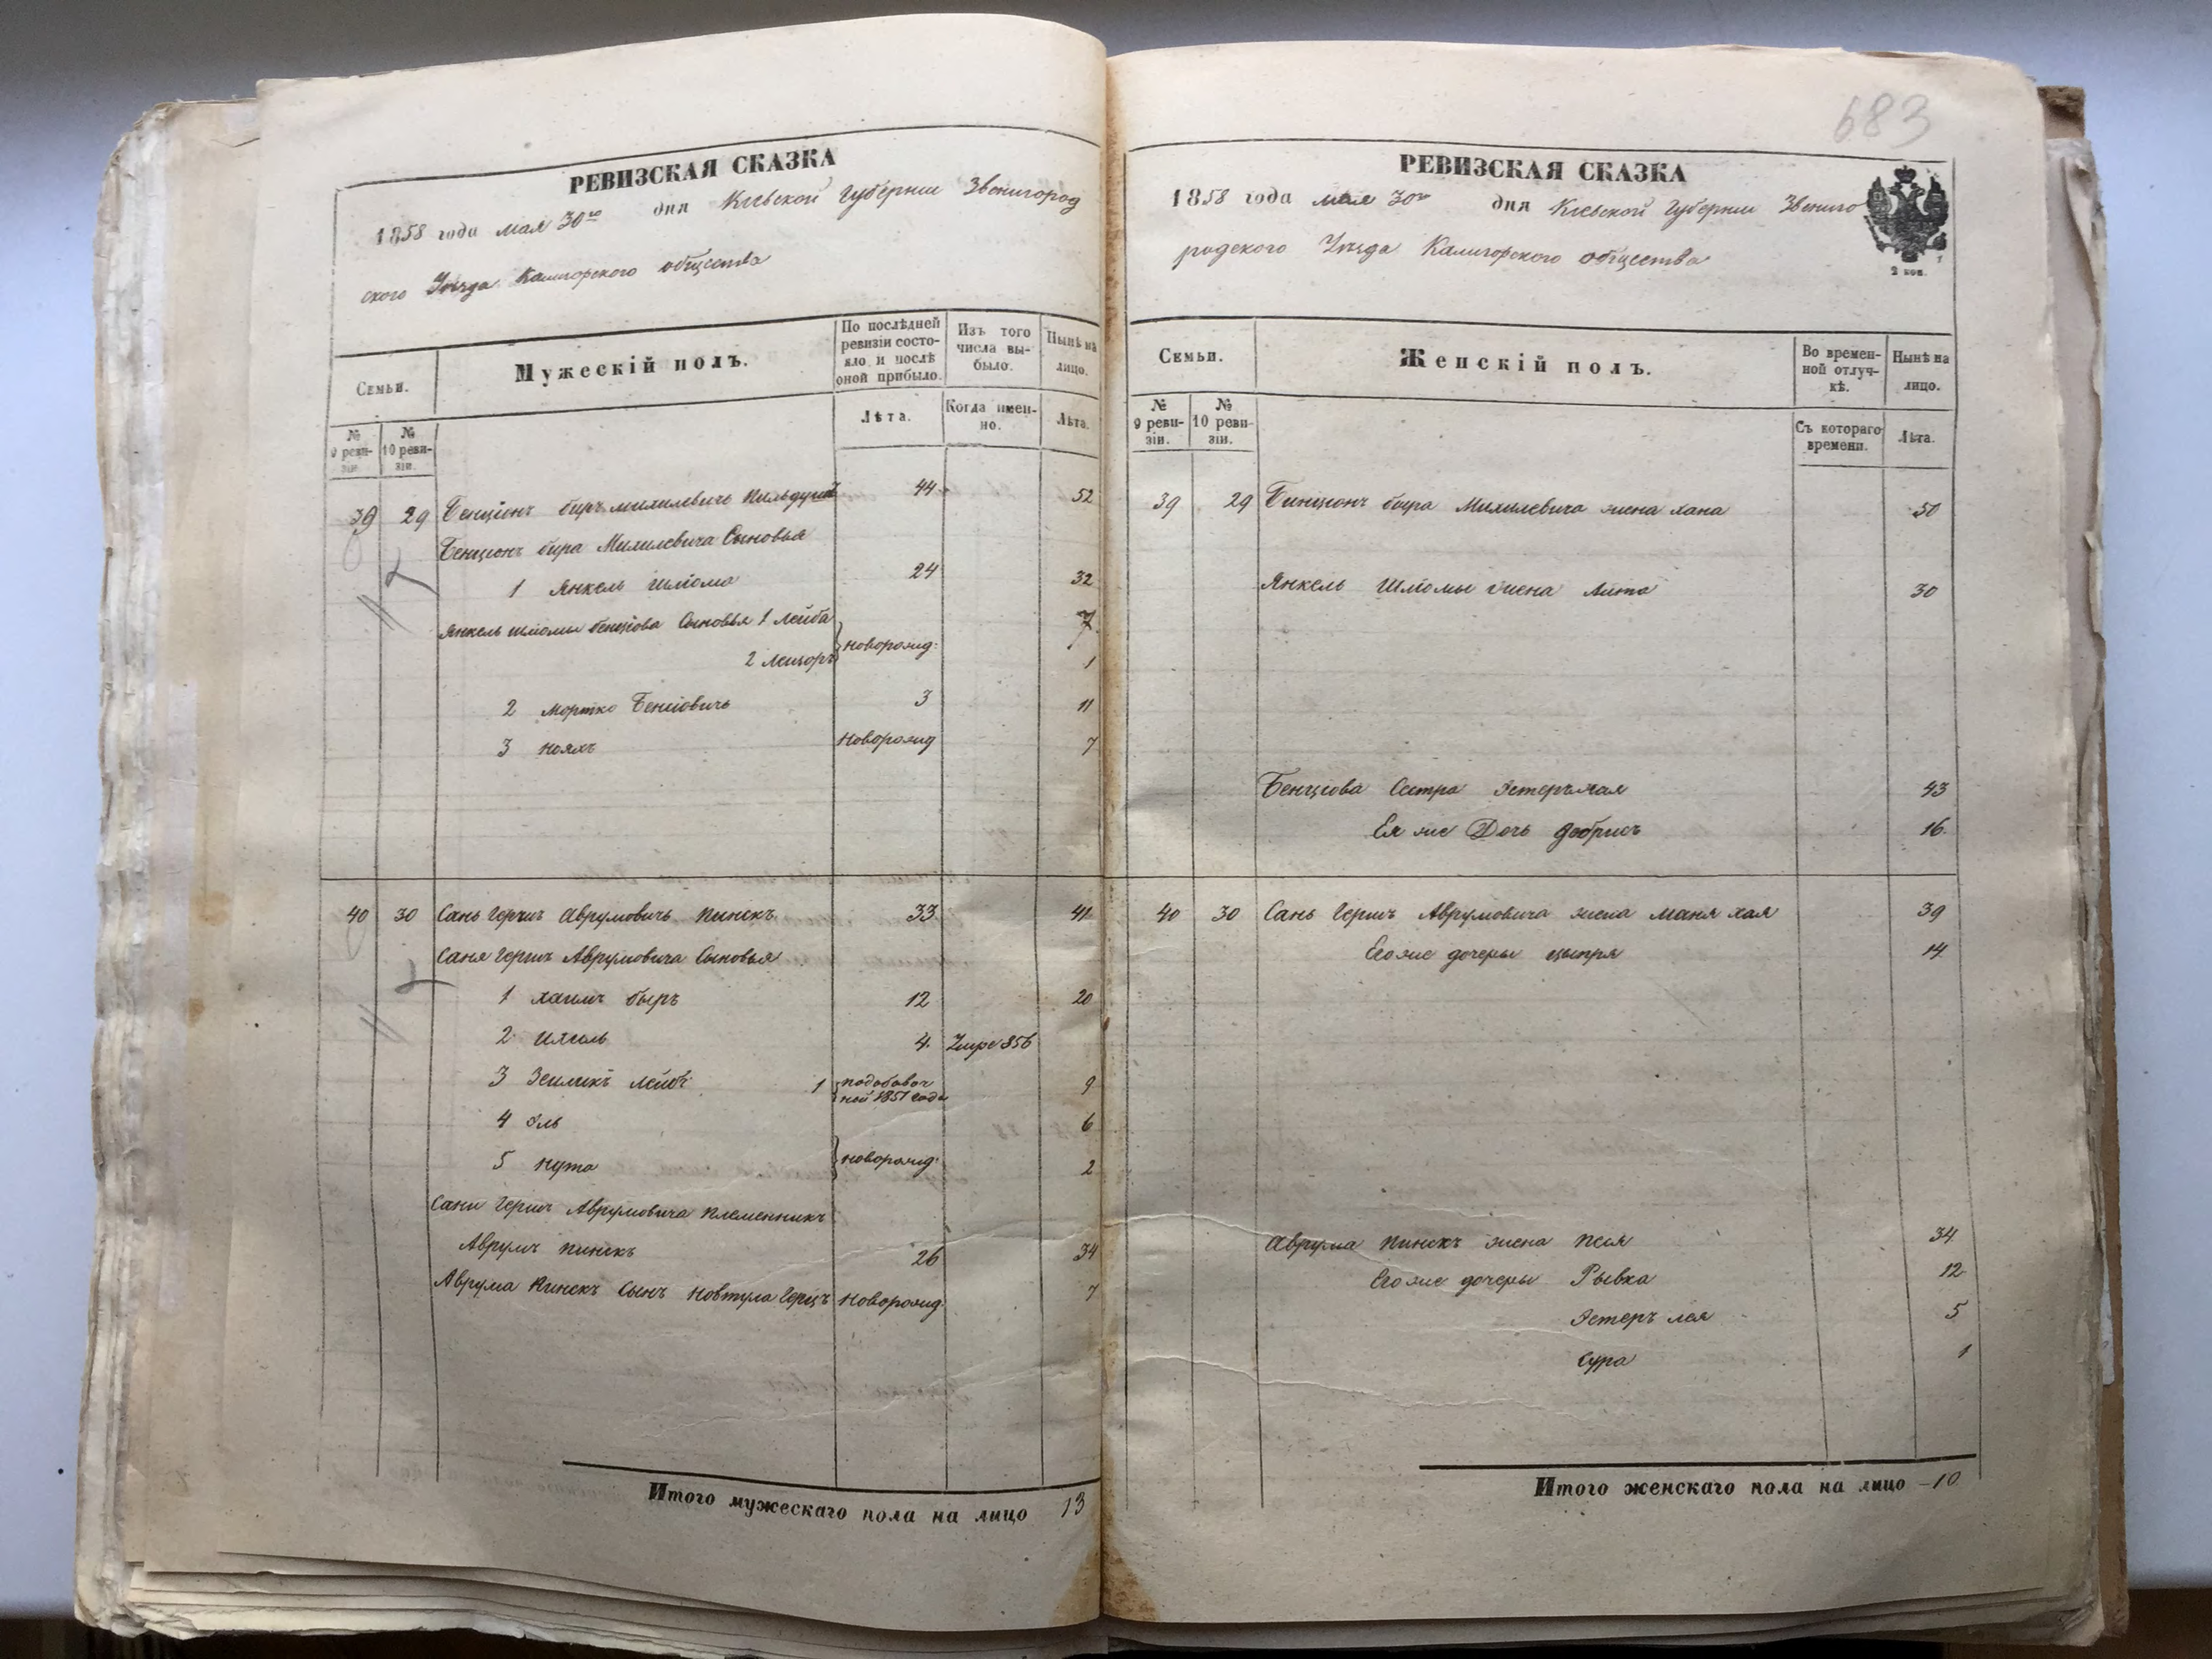 РЕВИЗСКАЯ СКАЗКА
1858 года мая 30го дня Кіевской Губерніи Звенигород
ского Уѣзда Калигорского общества
Семьи.
Мужескій полъ.
По послѣдней ревизіи состояло и послѣ оной прибыло.
Изъ того числа выбыло.
Нынѣ на лицо.
№ 9 ревизіи.
№ 10 ревизіи.
Лѣта.
Когда именно.
Лѣта.
39 29 Бенціонъ Милилевичь 44 52
Бенціонъ Милилевича Сыновья
1 Янкель Шлiома 24 32
Янкель шліомы бенціова Сыновья 1 Лейба 7
2 новорожд: 1
2 Мортко Бенціовичь 3 11
3 ноахъ Новорожд 7
40 30 Сань Гершъ Аврумовичь Пинскъ 33 41
Саня Гершъ Аврумовича Сыновья
1 хаимъ быръ 12 20
2 4. Умре 856
3 Зейликъ лейбъ 1 подобавоч
ной 1851 года 9
4 Эль 6
5 нута новорожд: 2
Сани Гершъ Аврумовича племенникъ
Аврумъ Пинскъ 26 34
Аврума Пинскъ Сынъ Новтула Герцъ Новорожд. 7
Итого мужескаго пола на лицо 13
683
РЕВИЗСКАЯ СКАЗКА
1858 года мая 30го дня Кіевской Губерніи Звениго
родского Уѣзда Калигорского общества
2 коп.
Семьи.
Женскій полъ.
Во временной отлучкѣ.
Нынѣ на лицо.
№ 9 ревизіи.
№ 10 ревизіи.
Съ котораго времени.
Лѣта.
39 29 Бинціонъ Милилевича жена хана 50
Янкель Шліомы жена 30
Бенціова Сестра Эстеръхая 43
Ея же Дочь Двобрысь 16
40 30 Сань Гершъ Аврумовича жена Маня хая 39
Его же дочеры цыпря 14
Аврума Пинскъ жена Песя 34
Его же дочеры Рывка 12
Эстеръ лея 5
Сура 1
Итого женскаго пола на лицо - 10